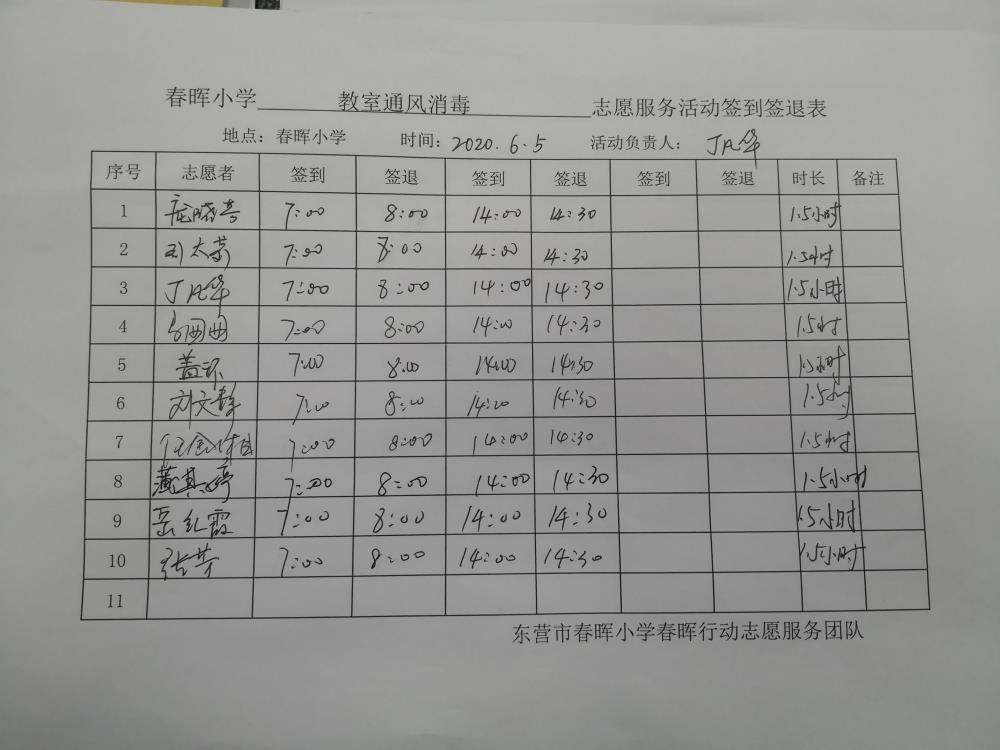 春晖小学 教室通风消毒 志愿服务活动签到签退表
地点：春晖小学 时间：2020.6.5 活动负责人：丁凡华
序号 志愿者 签到 签退 签到 签退 签到 签退 时长 备注
1 7:00 8:00 14:00 14:30 1.5小时
2 7:00 8:00 14:00 14:30 1.5小时
3 丁凡华 7:00 8:00 14:00 14:30 1.5小时
4 7:00 8:00 14:00 14:30 1.5小时
5 7:00 8:00 14:00 14:30 1.5小时
6 刘文静 7:00 8:00 14:00 14:30 1.5小时
7 7:00 8:00 14:00 14:30 1.5小时
8 7:00 8:00 14:00 14:30 1.5小时
9 岳红霞 7:00 8:00 14:00 14:30 1.5小时
10 张芳 7:00 8:00 14:00 14:30 1.5小时
11
东营市春晖小学春晖行动志愿服务团队